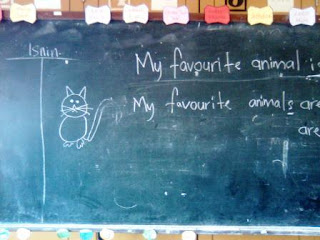 Isnin
My favourite animal is
My favourite animals are
are